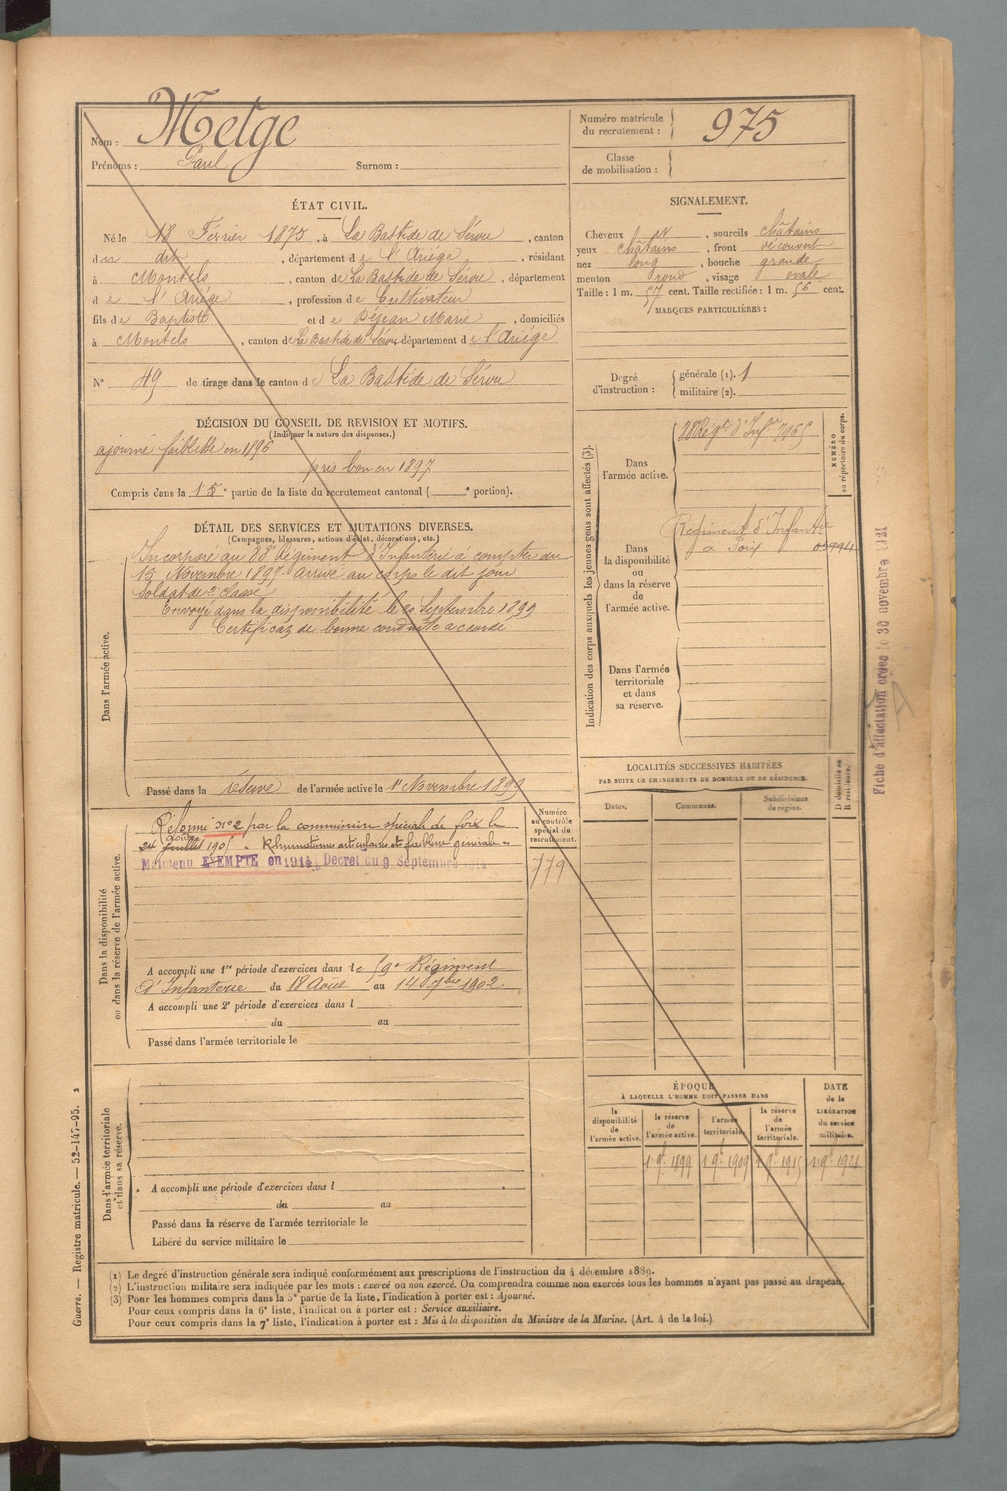 Nom : Metge
Prénoms : Paul Surnom :
Numéro matricule du recrutement : 975
Classe de mobilisation :
ÉTAT CIVIL.
Né le 18 Février 1875, à La Bastide de Sérou, canton
du dit, département de l'Ariége, résidant
à Montels, canton de La Bastide de Sérou, département
de l'Ariége, profession de Cultivateur
fils de Baptiste et de Déjean Marie, domiciliés
à Montels, canton de La Bastide de Sérou département de l'Ariége
N° 49 de tirage dans le canton de La Bastide de Sérou
SIGNALEMENT.
Cheveux , sourcils châtains
yeux châtains, front découvert
nez long, bouche grande
menton rond, visage ovale
Taille : 1 m. 57 cent. Taille rectifiée : 1 m. 56 cent.
MARQUES PARTICULIÈRES :
Degré d'instruction : générale (1). 1
militaire (2).
DÉCISION DU CONSEIL DE REVISION ET MOTIFS.
(Indiquer la nature des dispenses.)
ajourné faiblesse en 1896
pris bon en 1897
Compris dans la 1 5e partie de la liste du recrutement cantonal ( e portion).
DÉTAIL DES SERVICES ET MUTATIONS DIVERSES.
(Campagnes, blessures, actions d'éclat, décorations, etc.)
Dans l'armée active.
Incorporé au 88e Régiment d'Infanterie à compter du
15 Novembre 1897 arrivé au corps le dit jour
Soldat de 2e classe
Envoyé dans la disponibilité le 20 Septembre 1899
Certificat de bonne conduite accordé
Passé dans la réserve de l'armée active le 1er Novembre 1899
Indication des corps auxquels les jeunes gens sont affectés (3).
NUMÉRO au répertoire du corps.
Dans l'armée active.
88e Régt d'Infrie 7965
Dans la disponibilité ou dans la réserve de l'armée active.
Régiment d'Infantie
à Foix 05994
Dans l'armée territoriale et dans sa réserve.
Fiche d'affectation créée le 30 novembre 1921
Dans la disponibilité ou dans la réserve de l'armée active.
Réformé n° 2 par la commission spéciale de foix le
24 juillet 190 . Rhumatismes articulaires et faiblesse générale
Maintenu EXEMPTÉ en 1914, Décret du 9 Septembre 1914
Numéro au contrôle spécial du recrutement.
779
A accompli une 1re période d'exercices dans le 59e Régiment
d'Infanterie du 18 Août au 14 7bre 1902
A accompli une 2e période d'exercices dans l
du au
Passé dans l'armée territoriale le
LOCALITÉS SUCCESSIVES HABITÉES
PAR SUITE DE CHANGEMENTS DE DOMICILE OU DE RÉSIDENCE.
Dates. Communes. Subdivisions de région. D domicile ou R résidence.
Dans l'armée territoriale et dans sa réserve.
A accompli une période d'exercices dans l
du au
Passé dans la réserve de l'armée territoriale le
Libéré du service militaire le
ÉPOQUE
À LAQUELLE L'HOMME DOIT PASSER DANS
DATE de la LIBÉRATION du service militaire.
la disponibilité de l'armée active. la réserve de l'armée active. l'armée territoriale. la réserve de l'armée territoriale.
1 9bre 1899 1 9bre 1909 1 9bre 1915 1 9bre 1921
(1) Le degré d'instruction générale sera indiqué conformément aux prescriptions de l'instruction du 4 décembre 1889.
(2) L'instruction militaire sera indiquée par les mots : exercé ou non exercé. On comprendra comme non exercés tous les hommes n'ayant pas passé au drapeau.
(3) Pour les hommes compris dans la 5e partie de la liste, l'indication à porter est : Ajourné.
Pour ceux compris dans la 6e liste, l'indication à porter est : Service auxiliaire.
Pour ceux compris dans la 7e liste, l'indication à porter est : Mis à la disposition du Ministre de la Marine. (Art. 4 de la loi.)
Guerre. — Registre matricule. — 52-147-95. 2